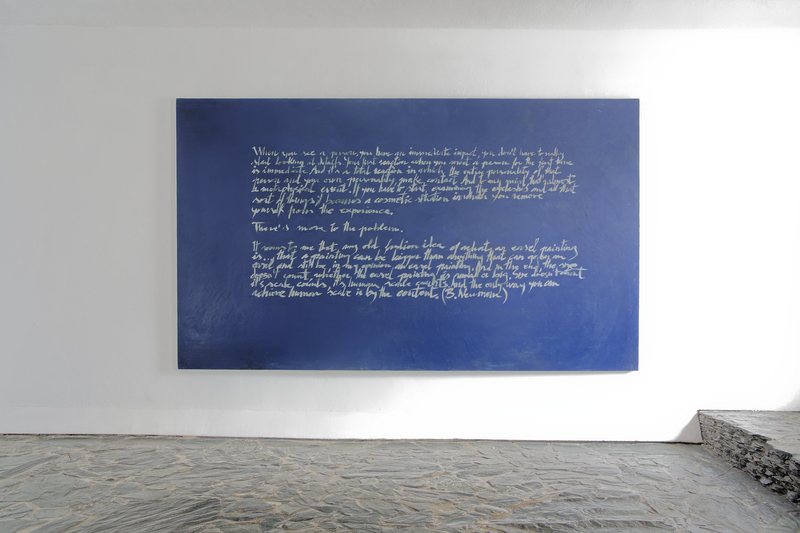 When you see a person, you have an immediate impact, you don't have to really
start looking at details. Your first reaction when you meet a person for the first time
is immediate. And it's a total reaction in which the entire personality of that
person and your own personality make contact. And to my point that's almost
a metaphysical event. If you have to start examining the eyelashes and all that
sort of things, it becomes a cosmetic situation in which you remove
yourself from the experience.
There's more to the problem.
It seems to me that any old, fashion idea of what an easel painting
is... that a painting can be bigger than anything that can go on an
easel and still be in my opinion an easel painting. And in the end, the size
doesn't count, whether the easel painting is small or big, size doesn't count
it's scale, counts, it's human scale counts. And the only way you can
achieve human scale is by the content. (B. Newman)